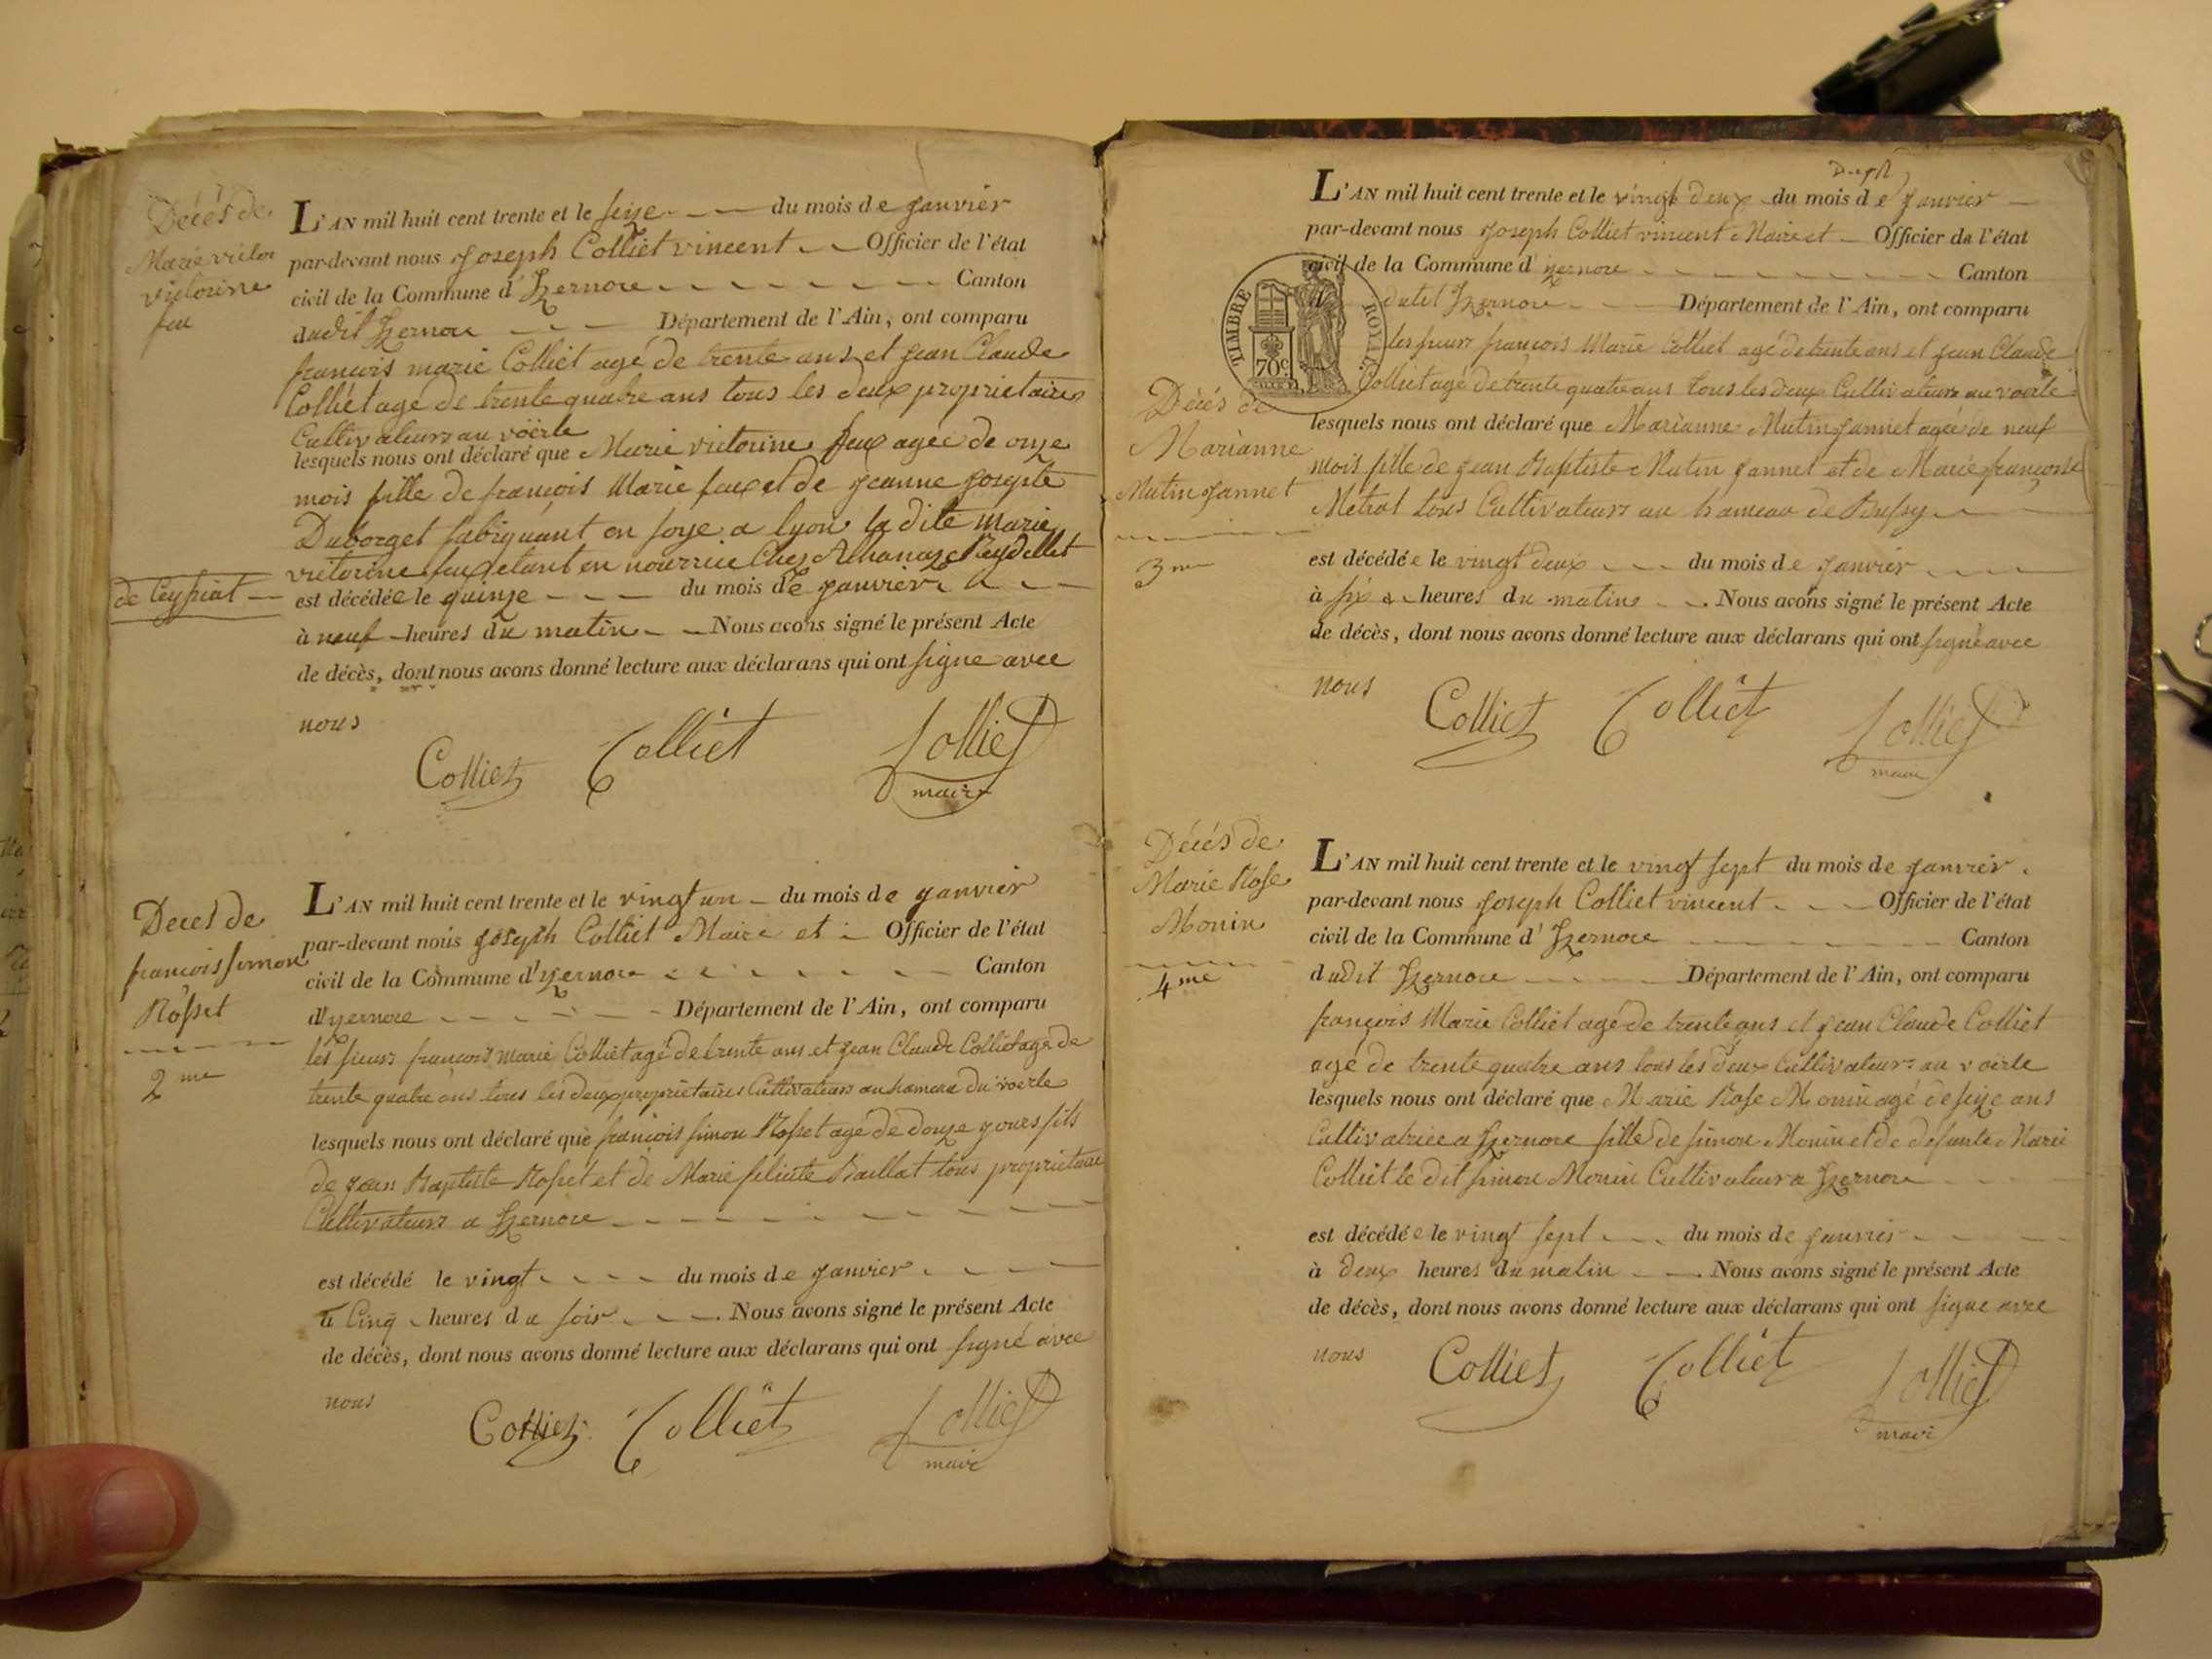 Décés de
Marie victoi
victorine
feu
L'AN mil huit cent trente et le seize du mois de janvier
par-devant nous joseph Colliet vincent Officier de l'état
civil de la Commune d'Izernore Canton
dudit Izernore Département de l'Ain, ont comparu
françois marie Colliet agé de trente ans et jean Claude
Colliet agé de trente quatre ans tous les deux proprietaires
Cultivateurs au voërle
lesquels nous ont déclaré que Marie victorine feux agée de onze
mois fille de françois Marie feux et de jeanne josepte
Duborget fabriquant en soye a lyon la dite marie
victorine feux etant en nourrice Chez Athanaze Reydellet
de Ceyssiat
est décédée le quinze du mois de janvier
à neuf heures du matin Nous avons signé le présent Acte
de décès, dont nous avons donné lecture aux déclarans qui ont signe avec
nous
Colliet Colliet Colliet
maire
Deces de
francois simon
Rosset
2me
L'AN mil huit cent trente et le vingt un du mois de janvier
par-devant nous joseph Colliet Maire et Officier de l'état
civil de la Commune d'izernore Canton
d'izernore Département de l'Ain, ont comparu
les sieurs francois marie Colliet agé de trente ans et jean Claude Colliet agé de
trente quatre ans tous les deux proprietaires Cultivateurs au hameau du voerle
lesquels nous ont déclaré que francois simon Rosset age de douze jours fils
de jean Baptiste Rosset et de Marie felicite Baillat tous proprietaire
Cultivateurs a Izernore
est décédé le vingt du mois de janvier
à Cinq heures du soir Nous avons signé le présent Acte
de décès, dont nous avons donné lecture aux déclarans qui ont signé avec
nous
Colliet Colliet Colliet
maire
L'AN mil huit cent trente et le vingt deux du mois de janvier
par-devant nous joseph Colliet vincent Maire et Officier de l'état
civil de la Commune d'izernore Canton
dudit Izernore Département de l'Ain, ont comparu
TIMBRE ROYAL
70c.
les sieurs françois Marie Colliet agé de trente ans et jean Claude
Colliet agé de trente quatre ans tous les deux Cultivateurs au voerle
Décés de
Marianne
Mutin jannet
3me
lesquels nous ont déclaré que Marianne Mutin jannet agée de neuf
mois fille de jean Baptiste Mutin jannet et de Marie françoise
Metral tous Cultivateurs au hameau de Bussy
est décédée le vingt deux du mois de janvier
à six heures du matin Nous avons signé le présent Acte
de décès, dont nous avons donné lecture aux déclarans qui ont signé avec
nous
Colliet Colliet Colliet
maire
Décés de
Marie Rose
Monin
4me
L'AN mil huit cent trente et le vingt sept du mois de janvier
par-devant nous joseph Colliet vincent Officier de l'état
civil de la Commune d'Izernore Canton
dudit Izernore Département de l'Ain, ont comparu
françois Marie Colliet agé de trente ans et jean Claude Colliet
agé de trente quatre ans tous les deux Cultivateurs au voërle
lesquels nous ont déclaré que Marie Rose Monin agé de seize ans
Cultivatrice a Izernore fille de simon Monin et de défunte Marie
Colliet le dit simon Monin Cultivateur a Izernore
est décédée le vingt sept du mois de janvier
à deux heures du matin Nous avons signé le présent Acte
de décès, dont nous avons donné lecture aux déclarans qui ont signe avec
nous
Colliet Colliet Colliet
mair